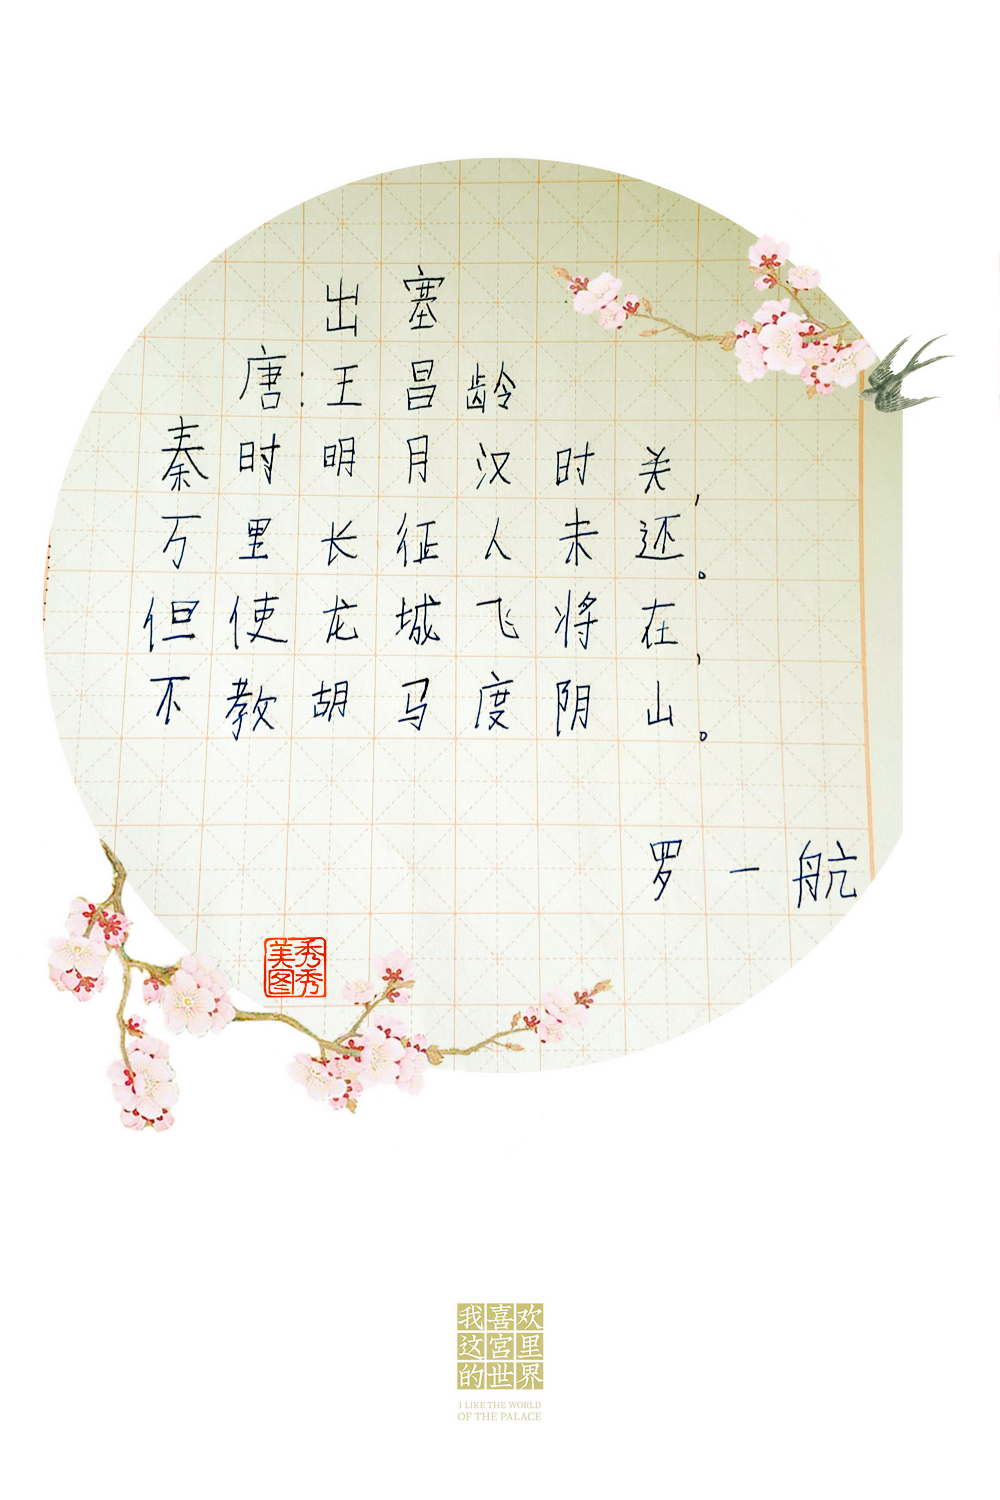 出塞
唐:王昌龄
秦时明月汉时关,
万里长征人未还。
但使龙城飞将在,
不教胡马度阴山。
罗一航
美图秀秀
我喜欢
这宫里
的世界
I LIKE THE WORLD
OF THE PALACE